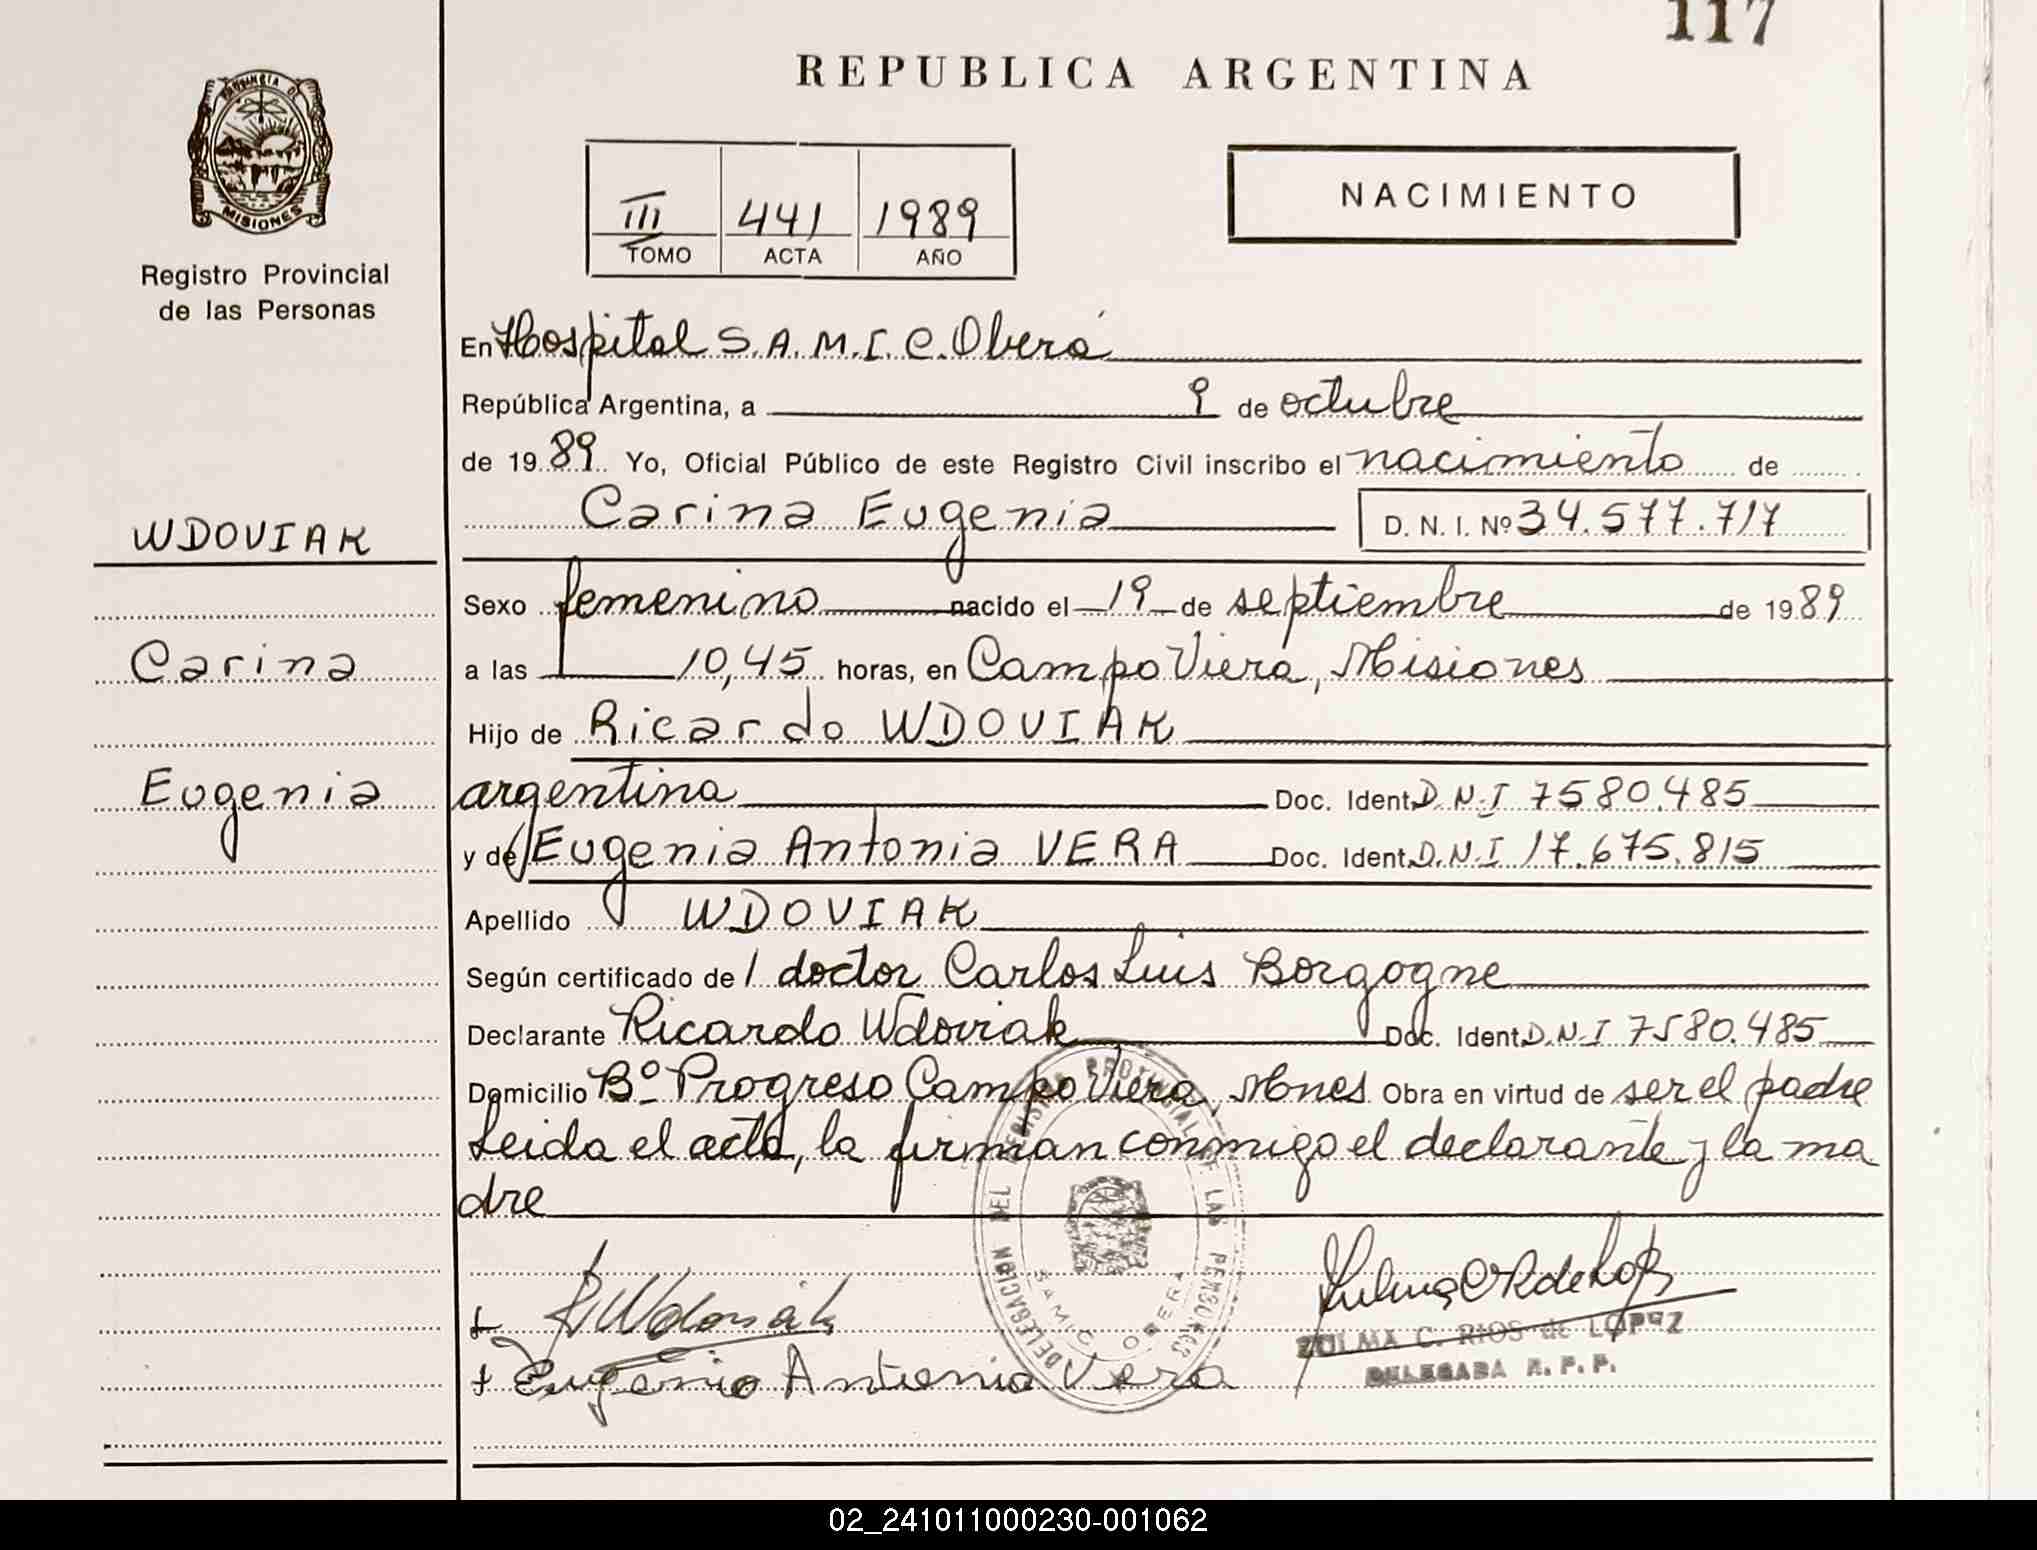 117
REPUBLICA ARGENTINA
PROVINCIA DE
MISIONES
Registro Provincial
de las Personas
III 441 1989
TOMO ACTA AÑO
NACIMIENTO
En Hospital S.A.M.I.C. Oberá
República Argentina, a 9 de octubre
de 1989 Yo, Oficial Público de este Registro Civil inscribo el nacimiento de
Carina Eugenia D. N. I. Nº 34.577.717
WDOVIAK
Sexo femenino nacido el 19 de septiembre de 1989
Carina
a las 10,45 horas, en Campo Viera, Misiones
Hijo de Ricardo WDOVIAK
Eugenia
argentina Doc. Ident. D.N.I 7580.485
y de Eugenia Antonia VERA Doc. Ident. D.N.I 17.675.815
Apellido WDOVIAK
Según certificado de l doctor Carlos Luis Borgogne
Declarante Ricardo Wdoviak Doc. Ident. D.N.I 7580.485
Domicilio Bº Progreso Campo Viera, Mnes Obra en virtud de ser el padre
Leida el acta, la firman conmigo el declarante y la ma
dre
DELEGACION DEL REGISTRO PROVINCIAL DE LAS PERSONAS
SAMIC OBERA
R. Wdoviak
Eugenia Antonia Vera
ZULMA C. RIOS de LOPEZ
DELEGADA R. P. P.
02_241011000230-001062